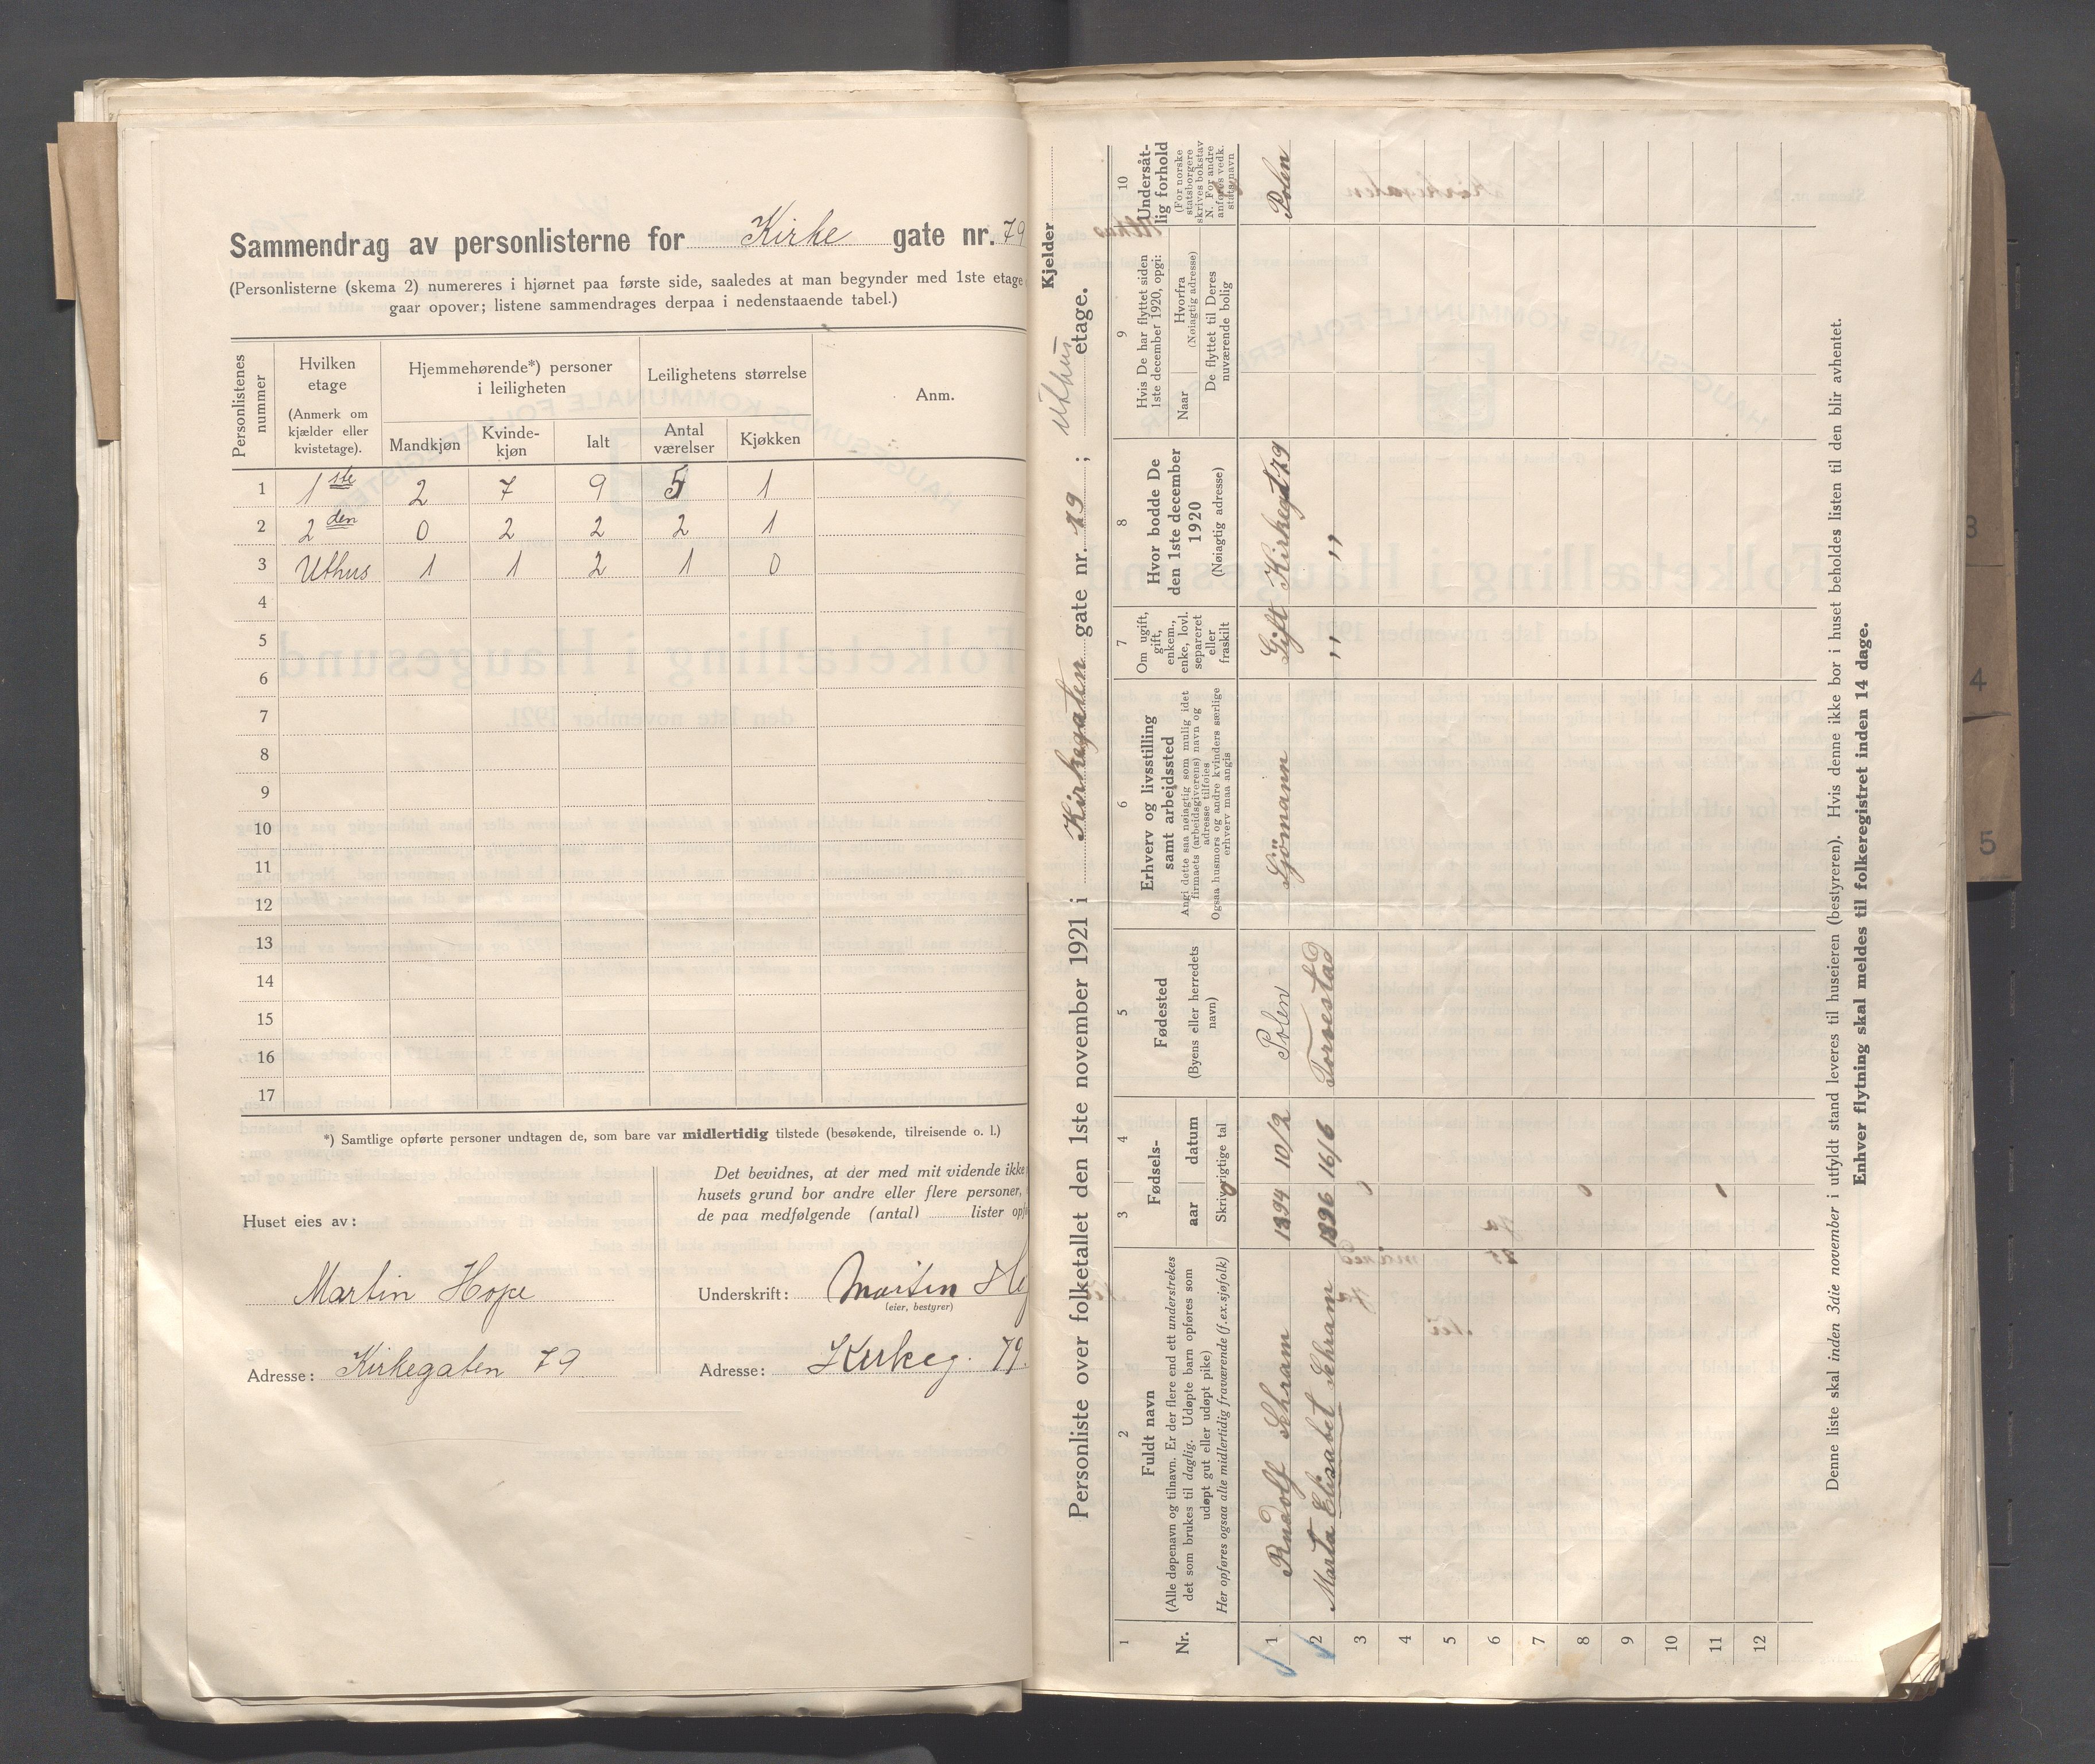 Sammendrag av personlisterne for Kirke gate nr. 79
(Personlisterne (skema 2) numereres i hjørnet paa første side, saaledes at man begynder med 1ste etage
gaar opover; listene sammendrages derpaa i nedenstaaende tabel.)
Personlistenes nummer
Hvilken etage
(Anmerk om kjælder eller kvistetage).
Hjemmehørende*) personer i leiligheten
Mandkjøn
Kvinde-kjøn
Ialt
Leilighetens størrelse
Antal værelser
Kjøkken
Anm.
1 1ste 2 7 9 5 1
2 2den 0 2 2 2 1
3 Uthus 1 1 2 1 0
4
5
6
7
8
9
10
11
12
13
14
15
16
17
*) Samtlige opførte personer undtagen de, som bare var midlertidig tilstede (besøkende, tilreisende o. l.)
Det bevidnes, at der med mit vidende ikke
husets grund bor andre eller flere personer,
de paa medfølgende (antal) lister
Huset eies av:
Martin Hope
Adresse: Kirkegaten 79
Underskrift: Martin
(eier, bestyrer)
Adresse: Kirkeg. 79.
Personliste over folketallet den 1ste november 1921 i Kirkegaten gate nr. 79 ; Uthus etage.
Kjelder
1
Nr.
2
Fuldt navn
(Alle døpenavn og tilnavn. Er der flere end ett understrekes
det som brukes til daglig. Udøpte barn opføres som
udøpt gut eller udøpt pike)
Her opføres ogsaa alle midlertidig fraværende (f.ex.sjøfolk)
3 4
Fødsels-
aar datum
Skriv rigtige tal
5
Fødested
(Byens eller herredets navn)
6
Erhverv og livsstilling
samt arbeidssted
Angi dette saa nøiagtig som mulig idet
firmaets (arbeidsgiverens) navn og
adresse tilføies
Ogsaa husmors og andre kvinders særlige
erhverv maa angis
7
Om ugift,
gift,
enkem.,
enke, lovl.
separeret
eller
fraskilt
8
Hvor bodde De
den 1ste december
1920
(Nøiagtig adresse)
9
Hvis De har flyttet siden
1ste december 1920, opgi:
Naar
Hvorfra
(Nøiagtig adresse)
De flyttet til Deres
nuværende bolig
10
Undersåt-
lig forhold
(For norske
statsborgere
skrives bokstav
N. For andre
anføres vedk.
stats navn
1 Rudolf Schram 1894 10/2 Polen Sjömann Gift Kirkegt 79 Polen
2 Marta Elisabet Schram 1896 16/6 Torvestad ,, ,,
3
4
5
6
7
8
9
10
11
12
Denne liste skal inden 3die november i utfyldt stand leveres til huseieren (bestyreren). Hvis denne ikke bor i huset beholdes listen til den blir avhentet.
Enhver flytning skal meldes til folkeregistret inden 14 dage.
3
4
5